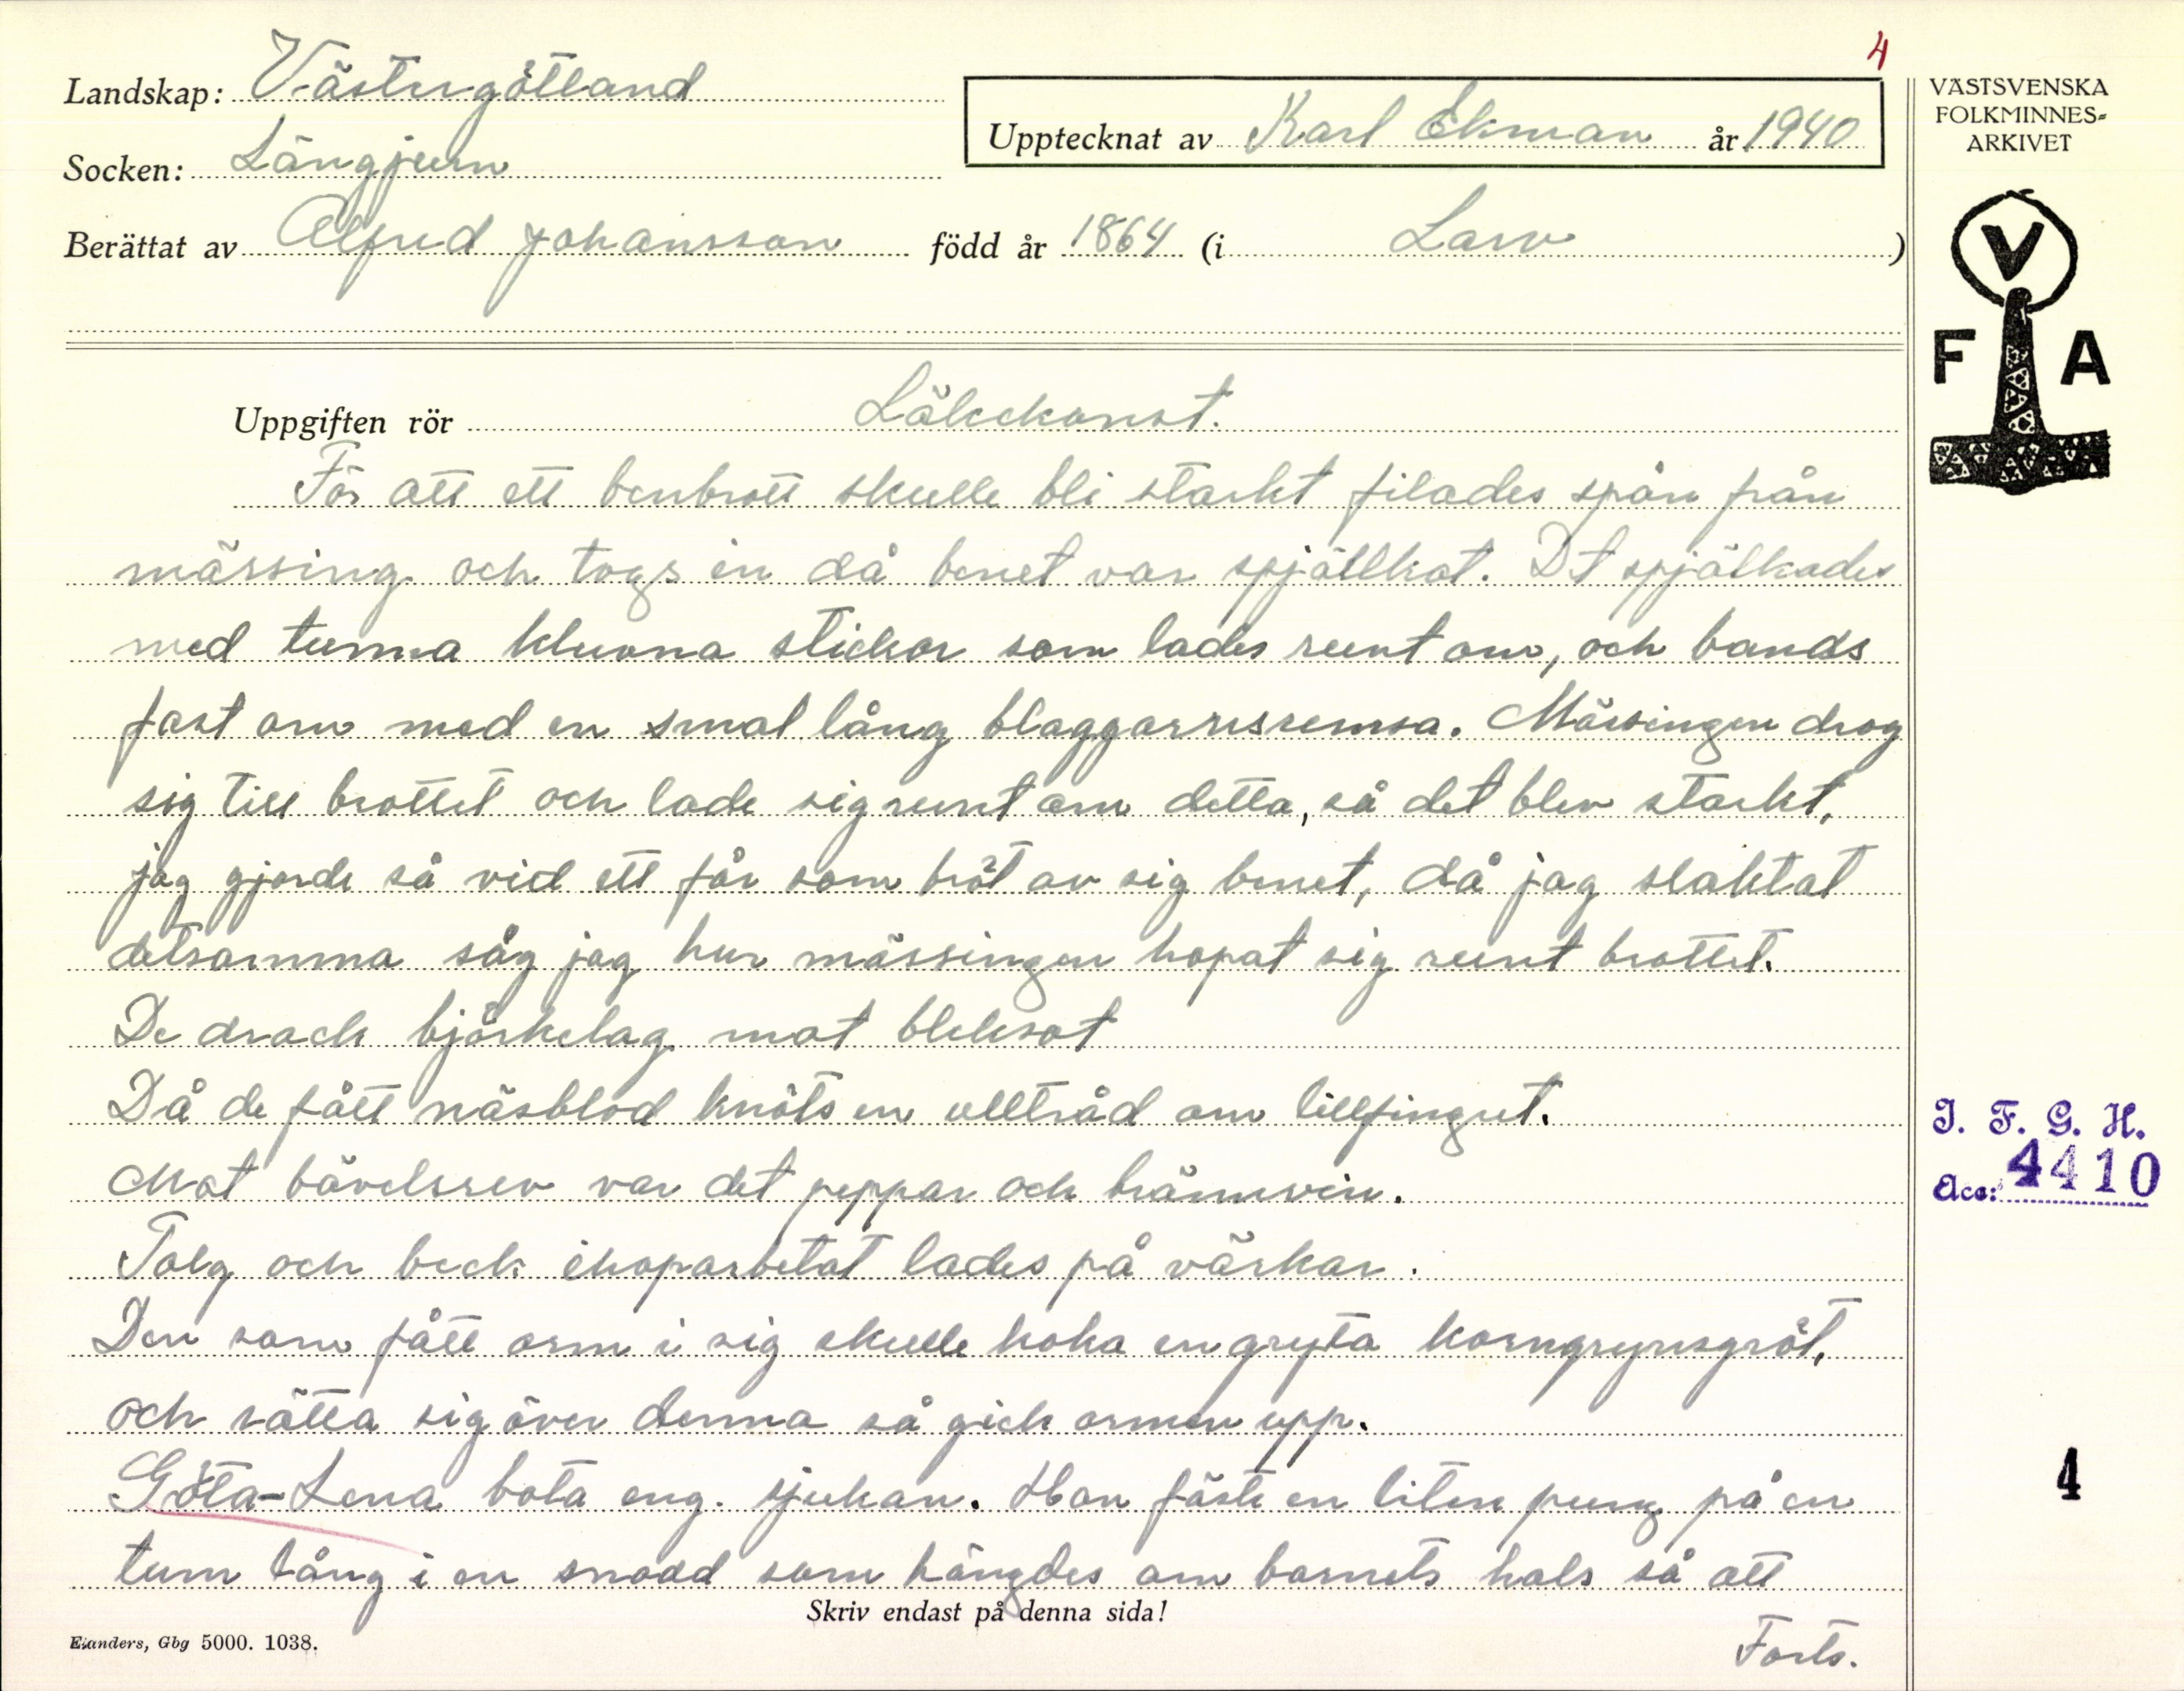 4
Landskap: Västergötland
Upptecknat av Karl Ekman år 1940
Socken: Längjum
Berättat av Alfred Johansson född år 1864 (i Larv)
VÄSTSVENSKA
FOLKMINNES-
ARKIVET
V
F A
Uppgiften rör Läkekonst.
För att ett benbrott skulle bli starkt filades spån från
mässing och togs in då benet var spjällkat. Dt spjälkades
med tunna kluvna stickor som lades runt om, och bands
fast om med en smal lång blaggarnsremsa. Mässingen drog
sig till brottet och lade sig runt om detta, så det blev starkt,
jag gjorde så vid ett får som bröt av sig benet, då jag slaktat
detsamma såg jag hur mässingen hopat sig runt brottet.
De drack björkelag mot bleksot
Då de fått näsblod knöts en ulltråd om lillfingret.
Mot bävelsrev var det peppar och brännvin.
Talg och beck ihoparbetat lades på värkar.
Den som fått orm i sig skulle koka en gryta korngrynsgröt,
och sätta sig över denna så gick ormen upp.
Göta-Lena bota eng. sjukan. Hon fäste en liten pung på en
tum lång i en snodd som hängdes om barnets hals så att
Skriv endast på denna sida!
Forts.
Elanders, Gbg 5000. 1038.
I. F. G. H.
Acc: 4410
4